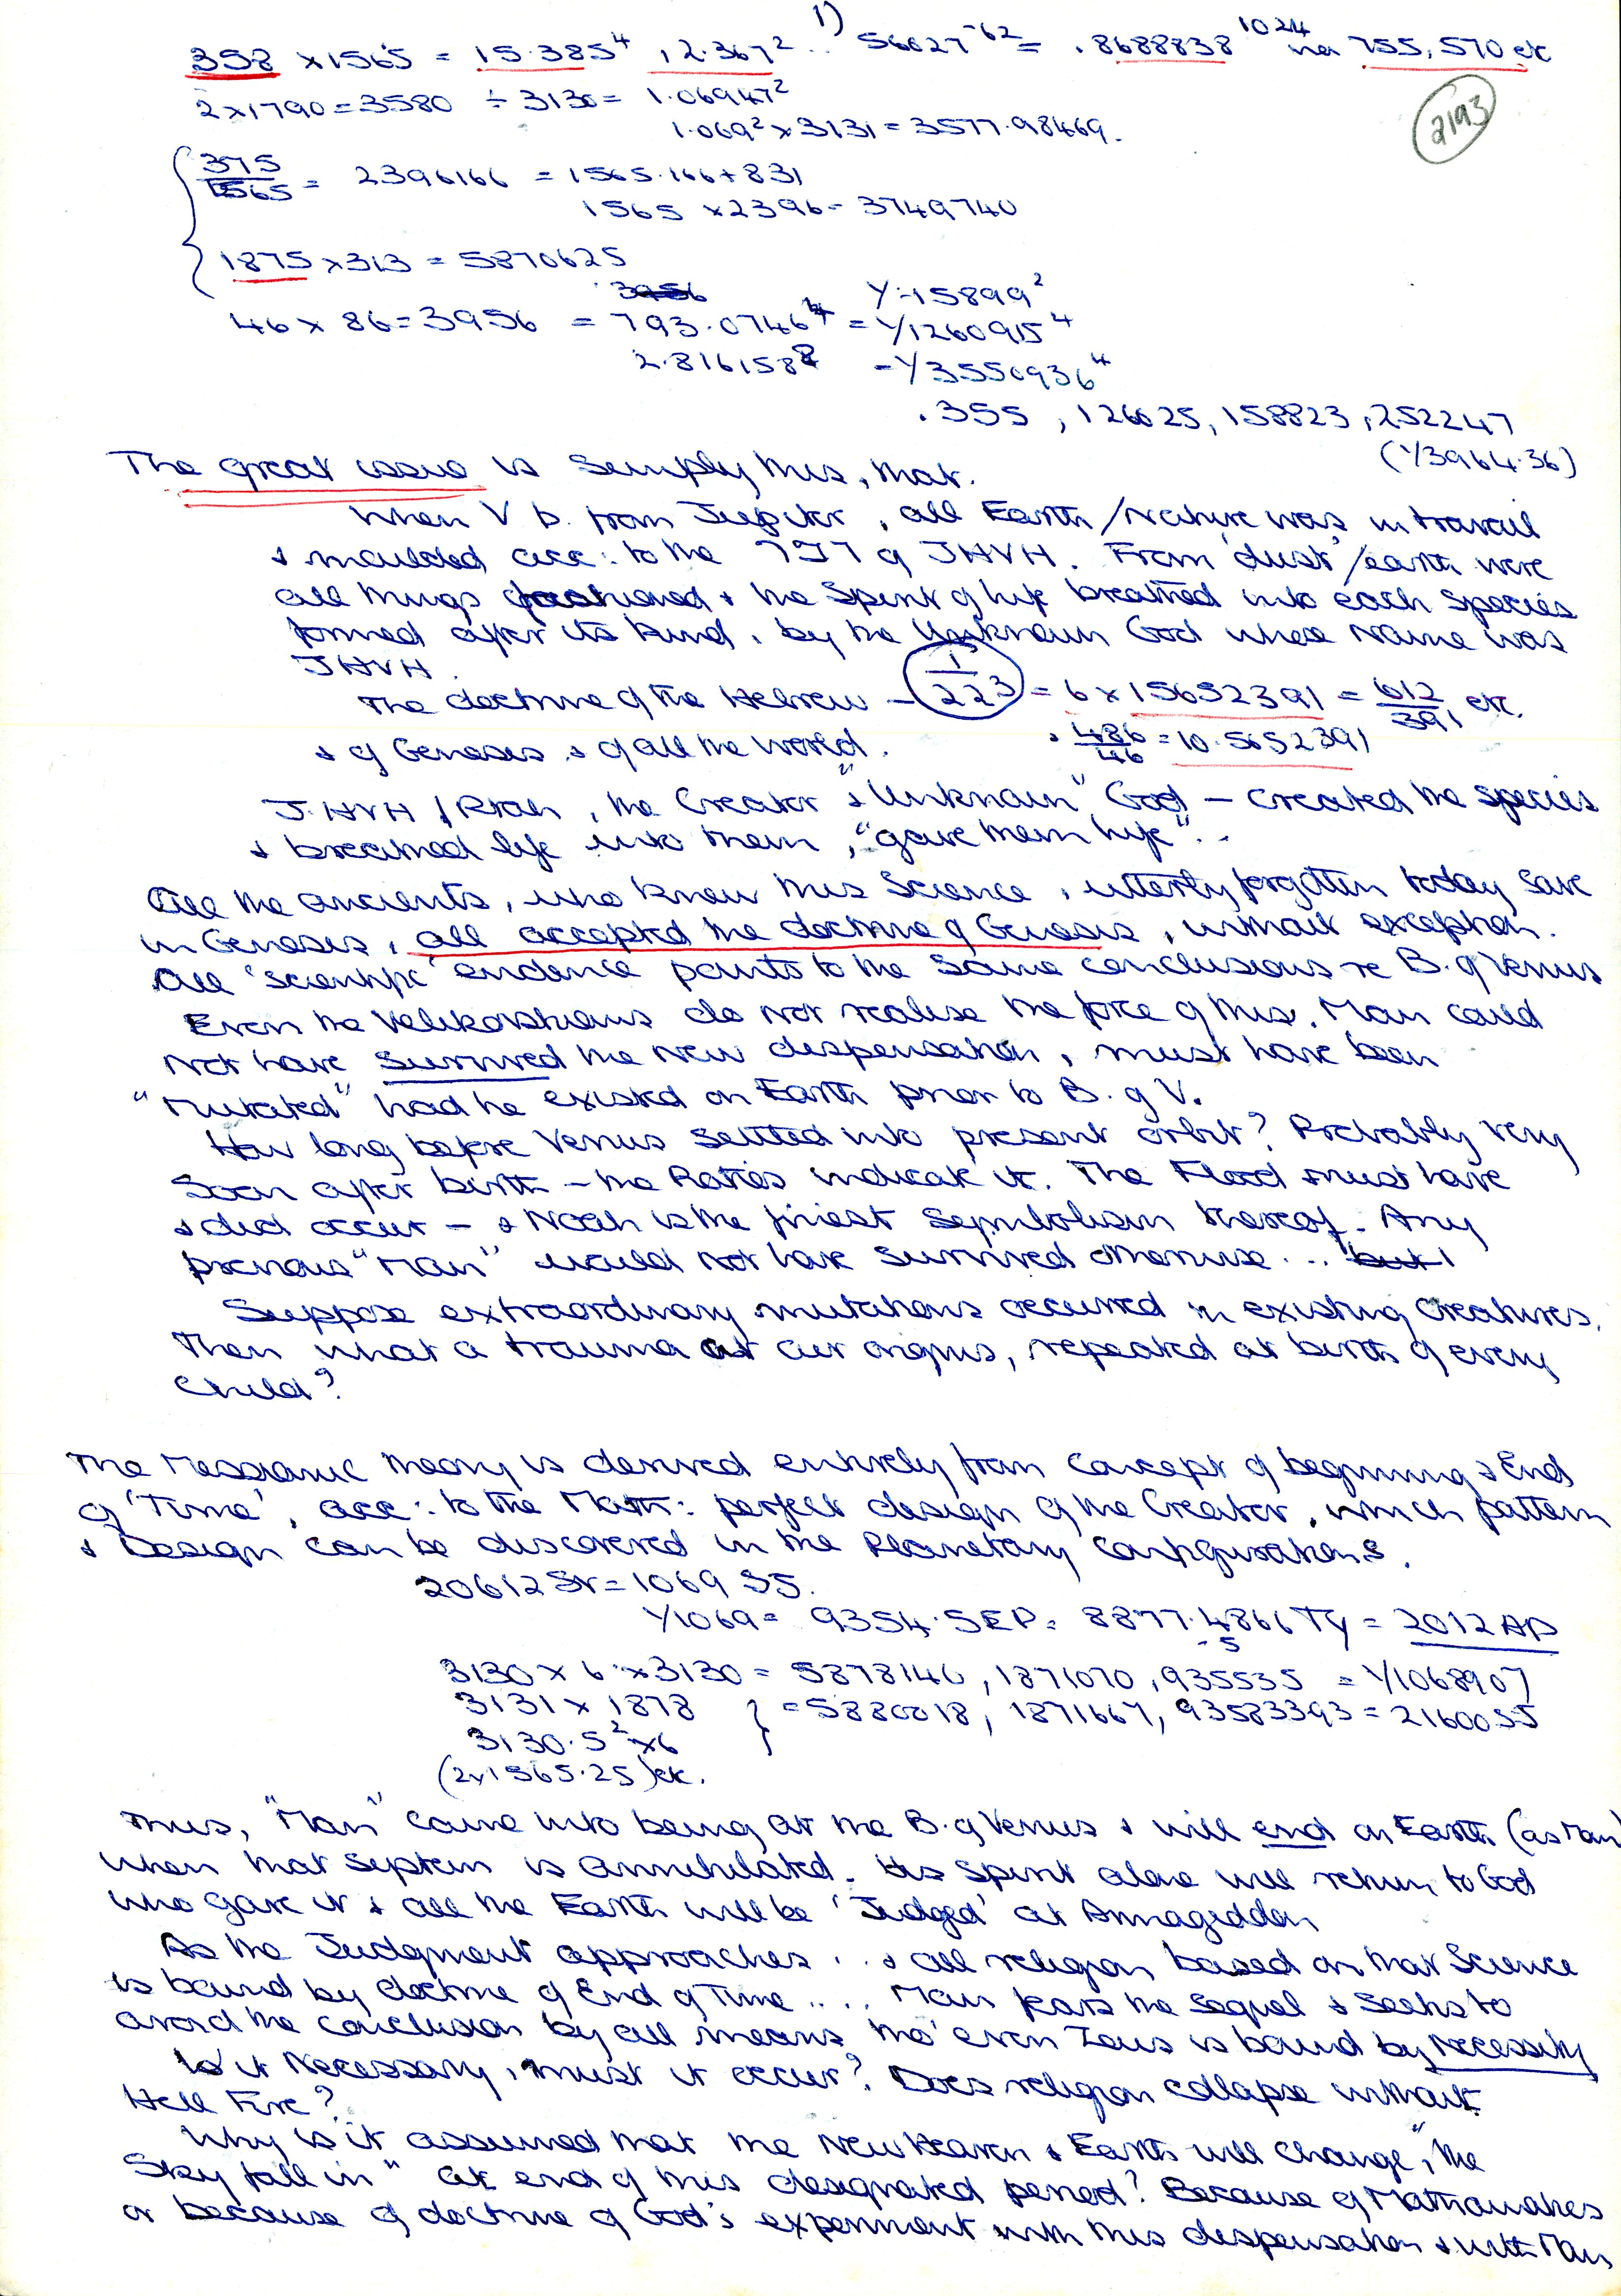 1)
358 x 1565 = 15.385⁴, 2.367² .. 56627⁻⁶² = .8688838¹⁰²⁴ via 755,570 etc
2193
2x1790=3580 ÷ 3130= 1.06947²
1.069² x 3131 = 3577.98469.
375/1565 = 2396166 = 1565.166+831
1565 x 2396= 3749740
1875 x 313 = 5870625
46 x 86=3956 = 793.0746⁴ = 1/1260915⁴
1/.15899²
2.816158⁸ = 1/3550936⁴
.355, 126025, 158823, 252247
(1/3964.36)
The great issue is simply this, that.
When V b. from Jupiter, all Earth/Nature was in travail
& moulded acc: to the of JHVH. From 'dust'/earth were
all things fashioned & the Spirit of life breathed into each species
formed after its kind, by the Unknown God whose Name was
JHVH.
The doctrine of the Hebrew - 1/223 = 6 x 15652391 = 612/391 etc.
& of Genesis & of all the World. & 486/46 = 10.5652391
J.HVH / Ptah, the Creator & "Unknown" God - created the species
& breathed life into them, "gave them life"..
All the ancients, who knew this Science, utterly forgotten today save
in Genesis, all accepted the doctrine of Genesis, without exception.
All 'scientific' evidence points to the same conclusions re B. of Venus
Even the Velikovskians do not realise the force of this. Man could
not have survived the new dispensation, must have been
"Mutated" had he existed on Earth prior to B. of V.
How long before Venus settled into present orbit? Probably very
soon after birth - the Ratios indicate it. The Flood must have
& did occur - & Noah is the finest Symbolism thereof. Any
previous "Man" would not have survived otherwise... but
Suppose extraordinary mutations occurred in existing creatures.
Then what a trauma at our origins, repeated at birth of every
Child?
The Messianic theory is derived entirely from concept of beginning & End
of 'Time', acc: to the Math: perfect design of the Creator, which pattern
& Design can be discovered in the Planetary configurations.
20612 Sr = 1069 SJ.
1/1069 = 9354.SEP = 8877.4866 Ty = 2012 AD
.5
3130 x 6 x 3130 = 5878140, 1871070, 935535 = 1/1068907
3131 x 1878 } = 5880018, 1871667, 93583393 = 2160035
3130.5² x 6
(2x1565.25) etc.
Thus, "Man" came into being at the B. of Venus & will end on Earth (as Man)
when that system is annihilated. His spirit alone will return to God
who gave it & all the Earth will be 'Judged' at Armageddon
As the Judgment approaches... & all religion based on that Science
is bound by doctrine of End of Time.... Man fears the sequel & seeks to
avoid the conclusion by all means, tho' even Zeus is bound by Necessity
Is it Necessary, must it occur? Does religion collapse without
Hell Fire?
Why is it assumed that the New Heaven & Earth will change, "the
Sky fall in" at end of this designated period? Because of Mathematics
or because of doctrine of God's experiment with this dispensation & with Man